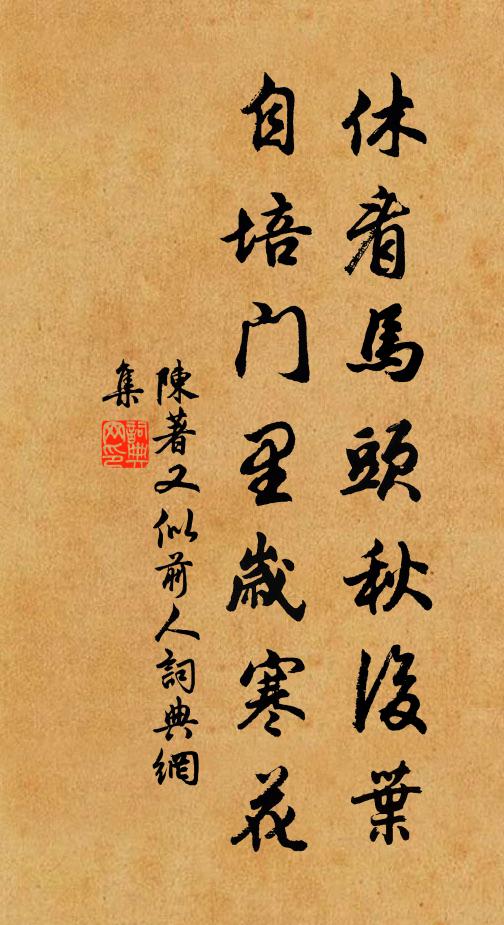 休看馬頭秋後葉
自培門里歲寒花
陳著又似前人詞典網
集
詞典網印